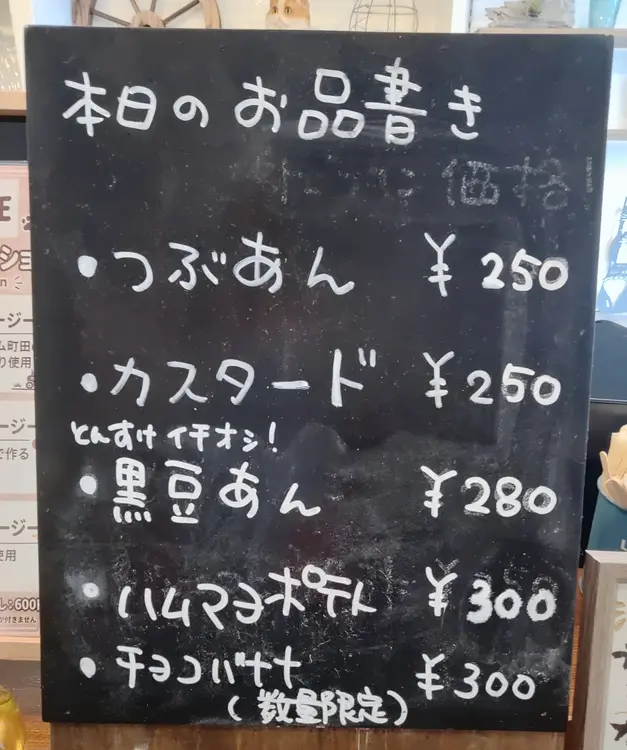 本日のお品書き
価格
・つぶあん ¥250
・カスタード ¥250
とんすけイチオシ!
・黒豆あん ¥280
・ハムマヨポテト ¥300
・チョコバナナ ¥300
(数量限定)
ージー
ム町田の
り使用
ージー
で作る
ージー
使用
し:600円